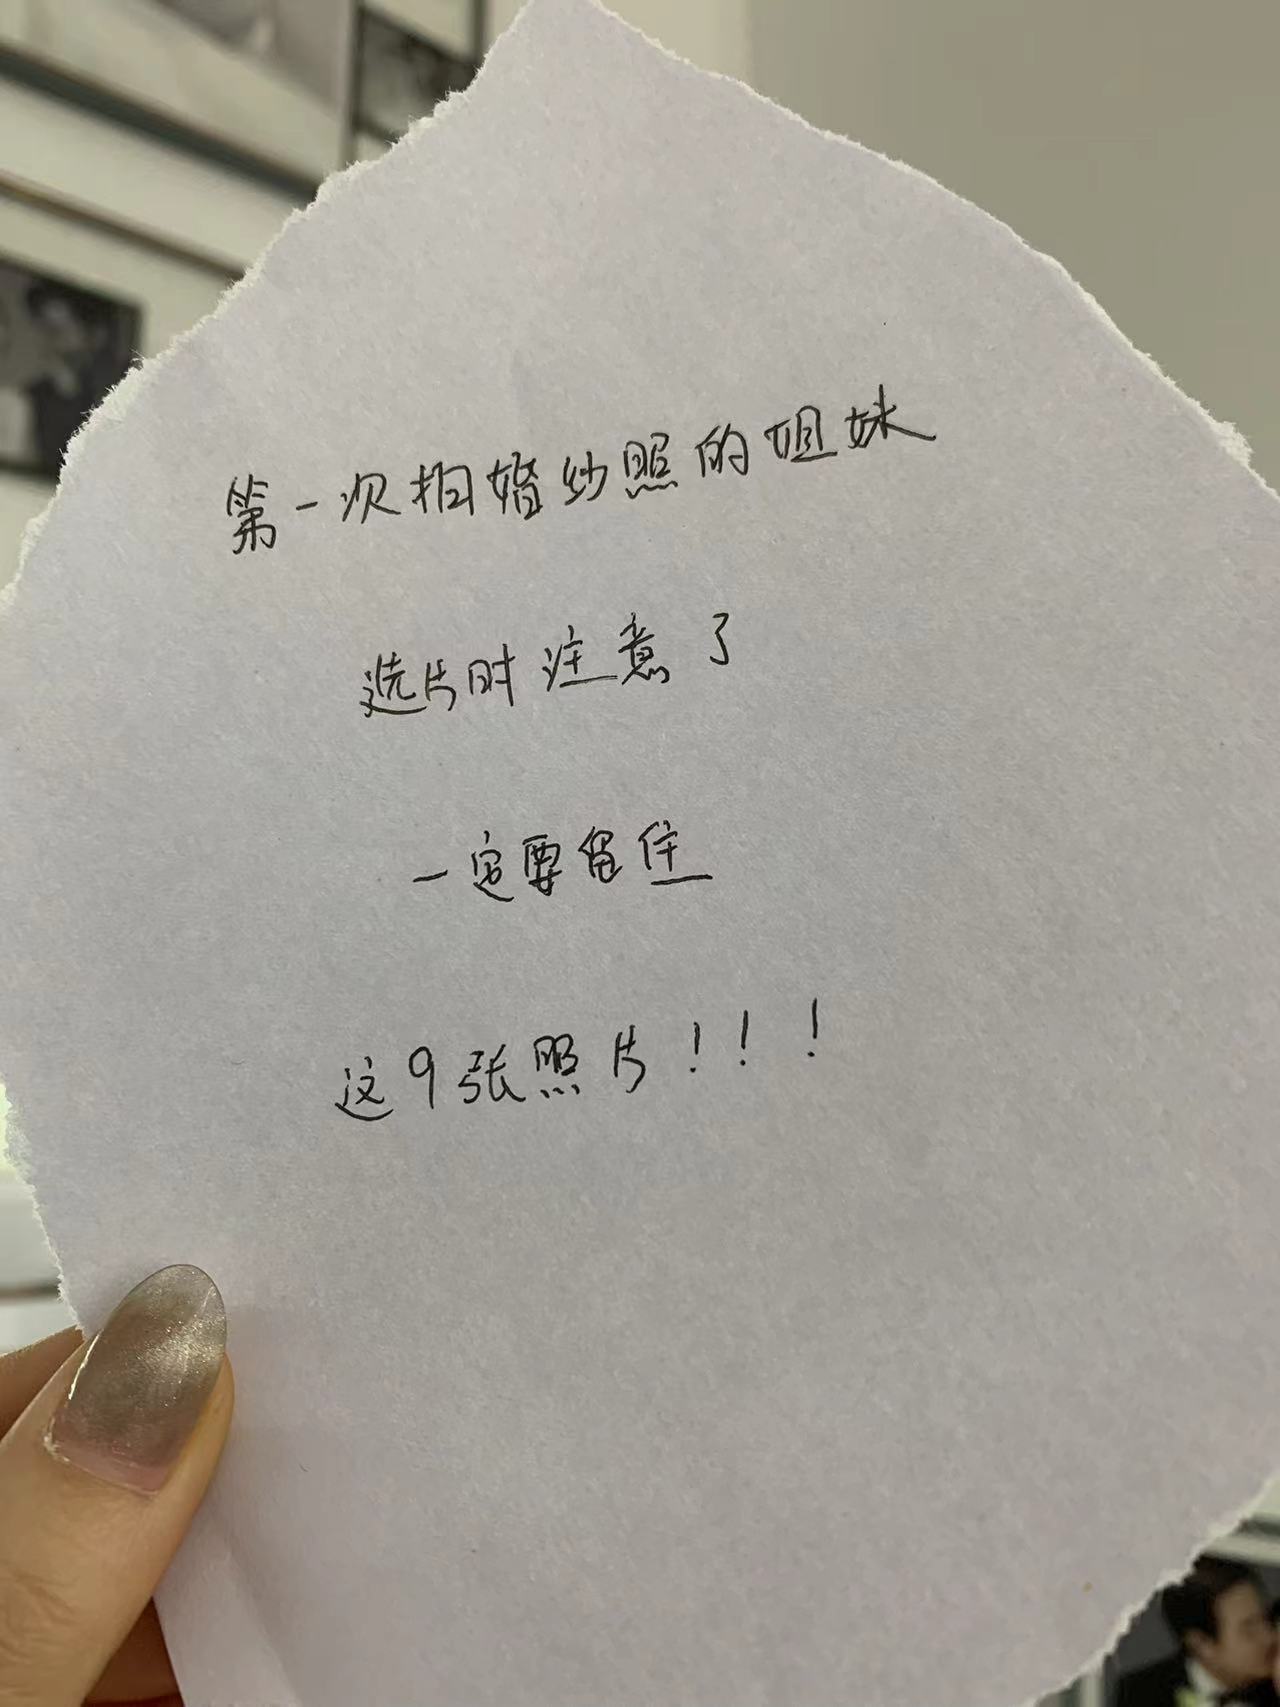 第一次拍婚纱照的姐妹
选片时注意了
一定要留住
这9张照片！！！